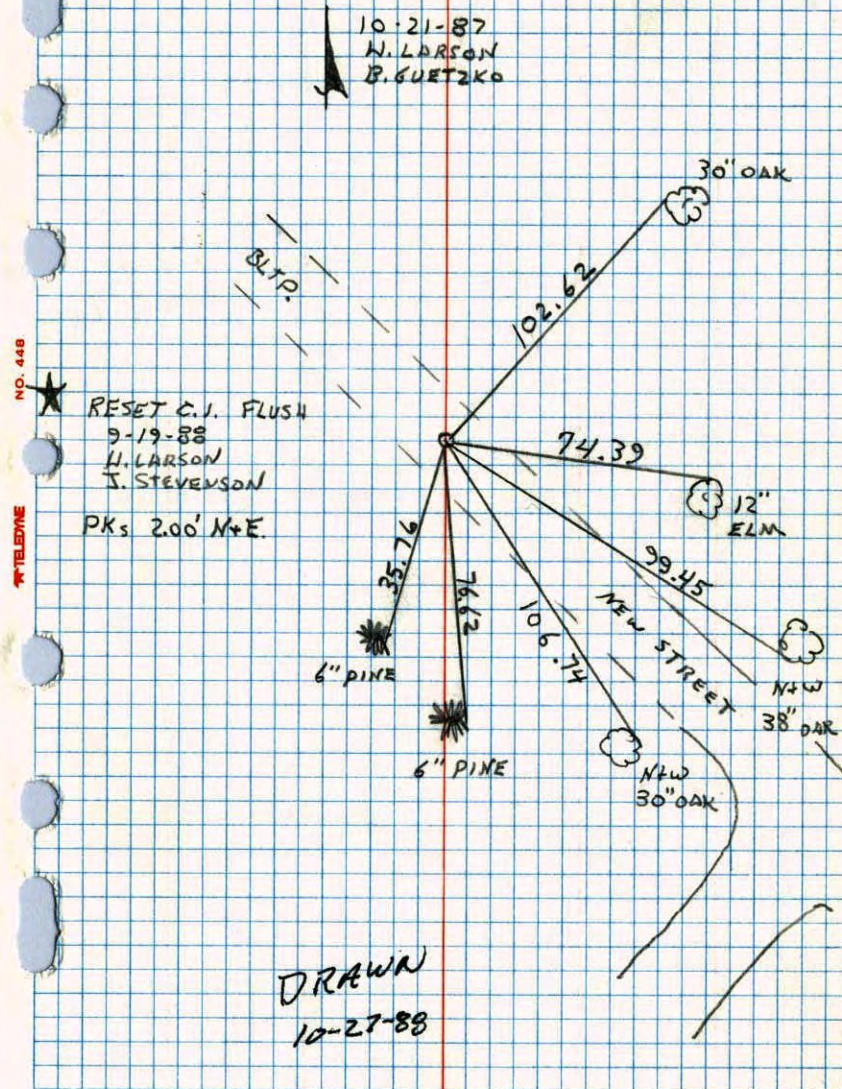 10-21-87
W. LARSON
B. GUETZKO
30" OAK
BLTP.
102.62
NO. 448
RESET C.I. FLUSH
9-19-88
W. LARSON
J. STEVENSON
PKs 2.00' N+E.
TELEDYNE
74.39
12"
ELM
99.45
35.76
76.62
106.74
NEW STREET
6" PINE
N+W
38" OAK
6" PINE
N+W
30" OAK
DRAWN
10-27-88